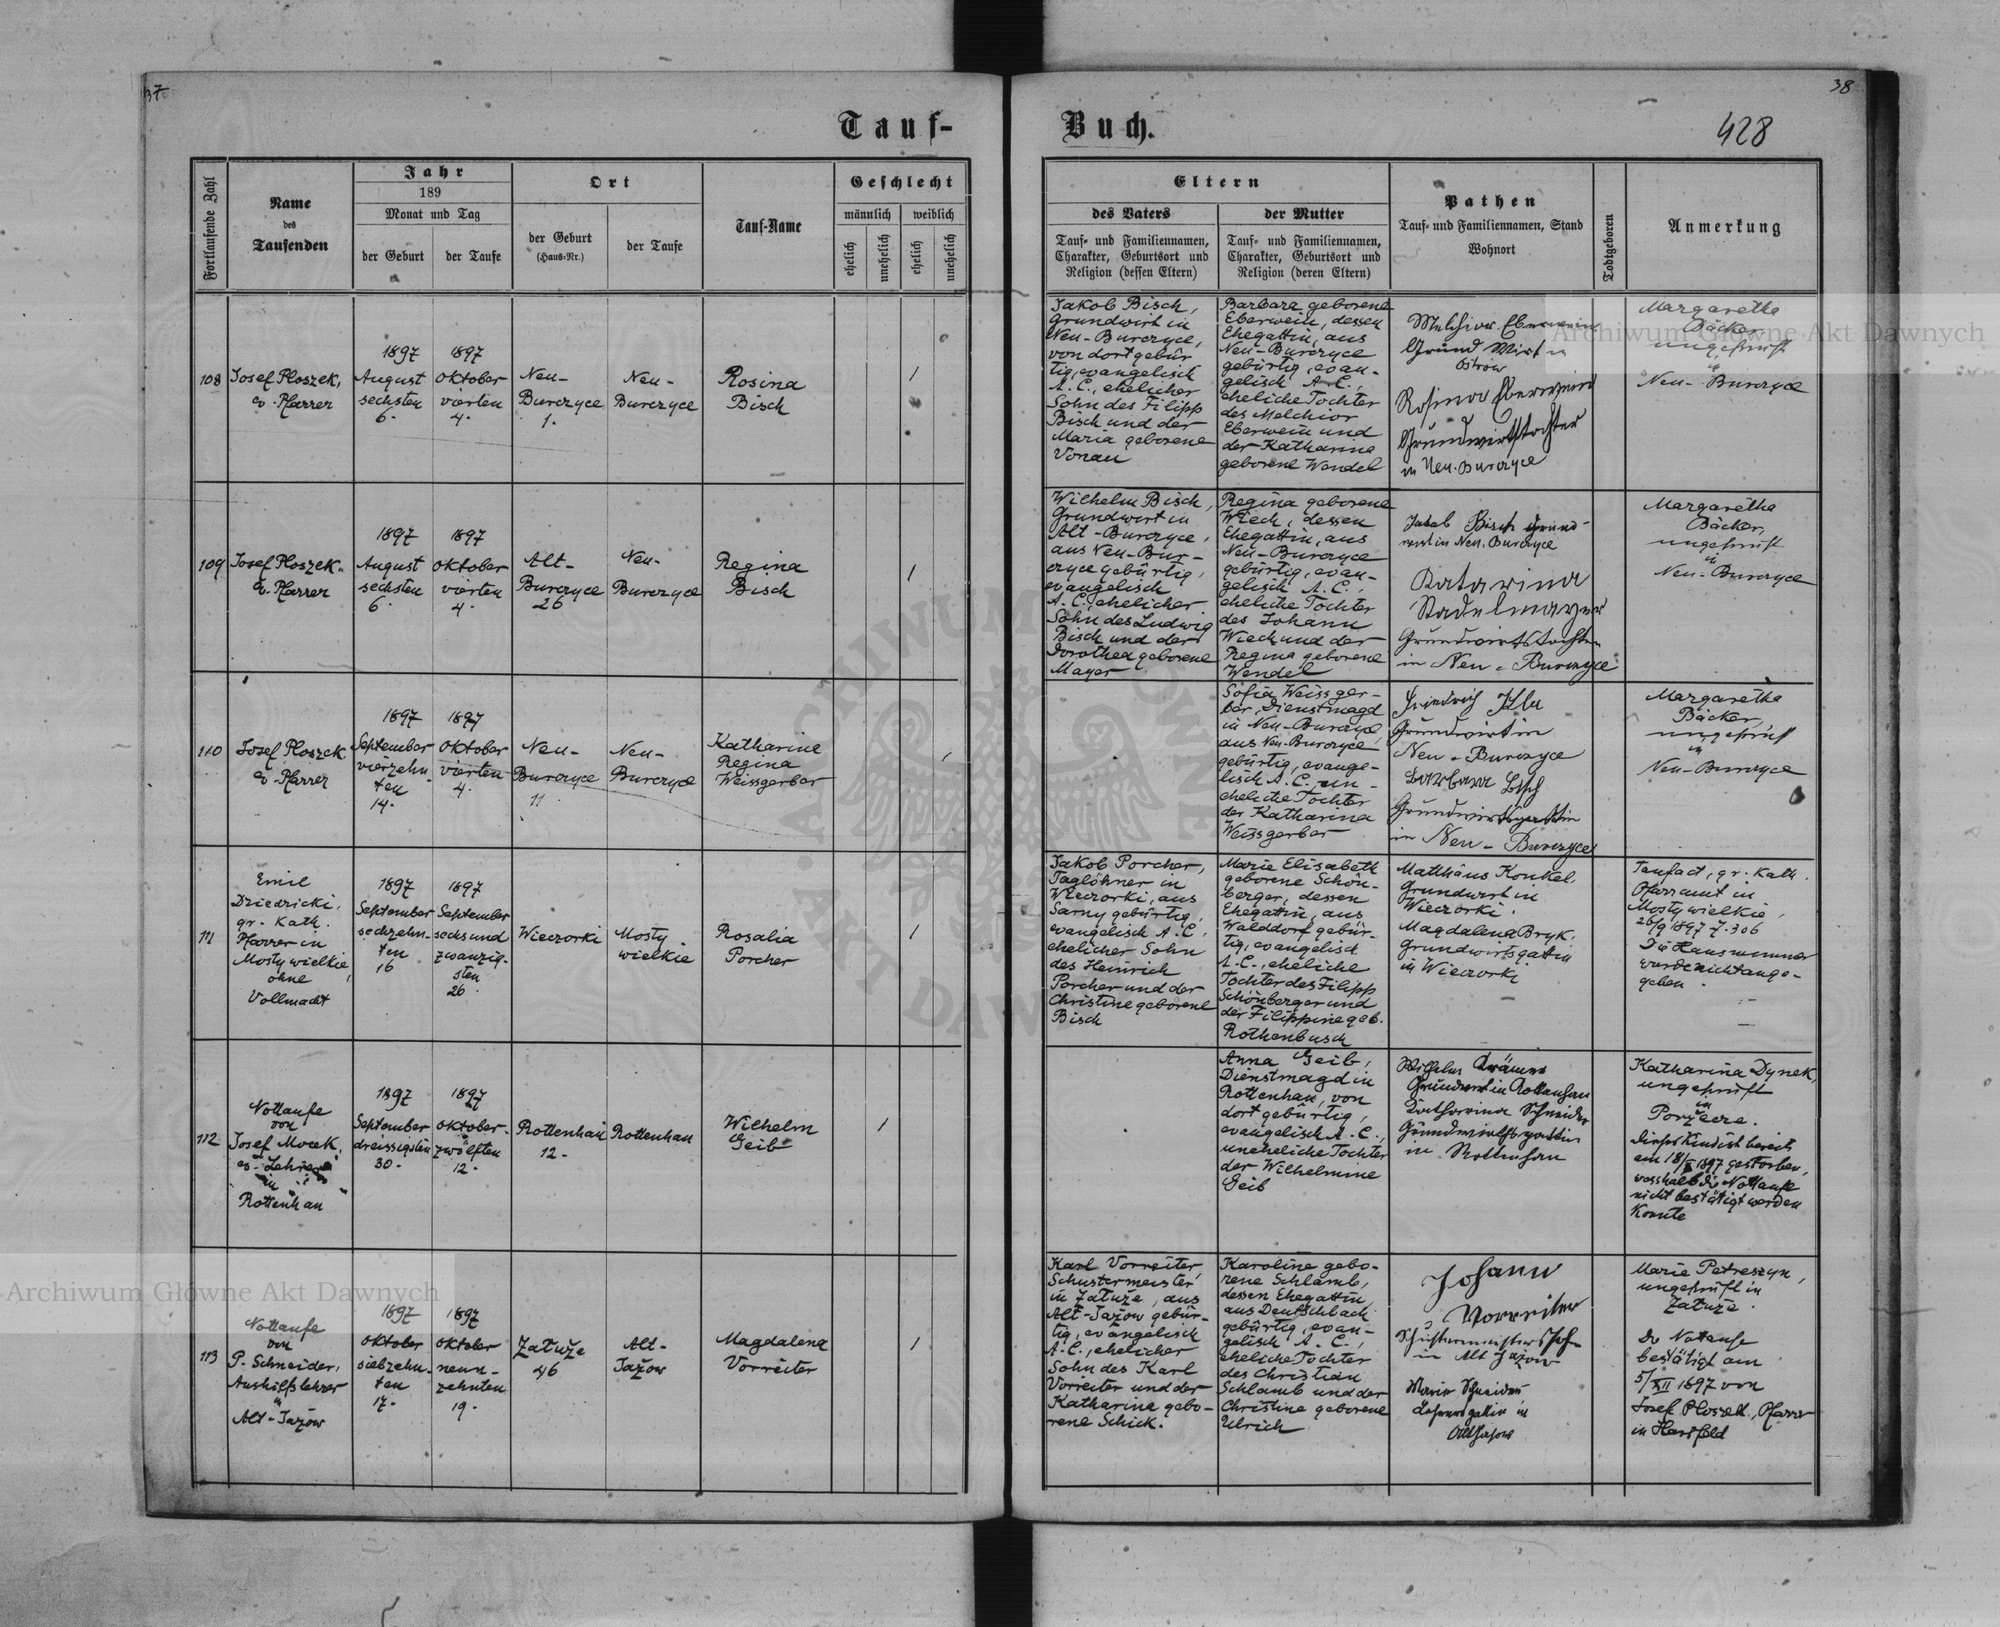 37
38
Tauf-
Buch.
428
Fortlaufende Zahl
Name
des
Taufenden
Jahr
189
Monat und Tag
der Geburt
der Taufe
Ort
der Geburt
(Haus-Nr.)
der Taufe
Tauf-Name
Geschlecht
männlich
weiblich
ehelich
unehelich
ehelich
unehelich
Eltern
des Vaters
Tauf- und Familiennamen,
Charakter, Geburtsort und
Religion (dessen Eltern)
der Mutter
Tauf- und Familiennamen,
Charakter, Geburtsort und
Religion (deren Eltern)
Pathen
Tauf- und Familiennamen, Stand
Wohnort
Todtgeboren
Anmerkung
108
Josef Ploszek,
ev. Pfarrer
1897
August
sechsten
6.
1897
Oktober
vierten
4.
Neu-
Burczyce
1.
Neu-
Burczyce
Rosina
Bisch
Jakob Bisch,
Grundwirt in
Neu-Burczyce,
von dort gebür
tig, evangelisch
A.C., ehelicher
Sohn des Filipp
Bisch und der
Maria geborene
Vonau
Barbara geborene
Eberwein, dessen
Ehegattin, aus
Neu-Burczyce
gebürtig, evan-
gelisch A.C.,
eheliche Tochter
des Melchior
Eberwein und
der Katharina
geborene Wendel
Melchior Eberwein
Grund Wirt in
Ostrow
Rosina Eberwein
Grundwirtstochter
in Neu-Burczyce
Margaretha
Bäcker,
ungeprüft
in
Neu-Burczyce
109
Josef Ploszek
ev. Pfarrer
1897
August
sechsten
6.
1897
Oktober
vierten
4.
Alt-
Burczyce
26
Neu-
Burczyce
Regina
Bisch
Wilhelm Bisch,
Grundwirt in
Alt-Burczyce,
aus Neu-Bur-
czyce gebürtig,
evangelisch
A.C., ehelicher
Sohn des Ludwig
Bisch und der
Dorothea geborene
Mayer
Regina geborene
Wiech, dessen
Ehegattin, aus
Neu-Burczyce
gebürtig, evan-
gelisch A.C.,
eheliche Tochter
des Johann
Wiech und der
Regina geborene
Wendel
Jakob Bisch Grund-
wirt in Neu-Burczyce
Katarina
Stadelmayer
Grundwirtstochter
in Neu-Burczyce
Margaretha
Bäcker,
ungeprüft
in
Neu-Burczyce
110
Josef Ploszek
ev. Pfarrer
1897
September
vierzehn-
ten
14.
1897
Oktober
vierten
4.
Neu-
Burczyce
11
Neu-
Burczyce
Katharine
Regina
Weissgerber
Sofia Weissger-
ber, Dienstmagd
in Neu-Burczyce,
aus Neu-Burczyce
gebürtig, evange-
lisch A.C., un-
eheliche Tochter
der Katharina
Weissgerber
Friedrich
Grundwirt in
Neu-Burczyce
Barbara Bisch
Grundwirtsgattin
in Neu-Burczyce
Margaretha
Bäcker,
ungeprüft
in
Neu-Burczyce
111
Emil
Dziedzicki,
gr. kath.
Pfarrer in
Mosty wielkie,
ohne
Vollmacht
1897
September
sechzehn-
ten
16
1897
September
sechsund
zwanzig-
sten
26
Wieczorki
Mosty
wielkie
Rosalia
Porcher
Jakob Porcher,
Taglöhner in
Wieczorki, aus
Sarny gebürtig,
evangelisch A.C.,
ehelicher Sohn
des Heinrich
Porcher und der
Christine geborene
Bisch
Marie Elisabeth
geborene Schön-
berger, dessen
Ehegattin, aus
Walddorf gebür-
tig, evangelisch
A.C., eheliche
Tochter des Filipp
Schönberger und
der Filippine geb.
Rothenbusch
Matthäus Konkel,
Grundwirt in
Wieczorki.
Magdalena Bryk,
Grundwirtsgattin
in Wieczorki
Taufact, gr. kath.
Pfarramt in
Mosty wielkie,
26/9 1897 Z. 306
Die Hausnummer
wurde nicht ange-
geben.
112
Nottaufe
von
Josef Mocek,
ev. Lehrer
in
Rottenhan
1897
September
dreissigsten
30.
1897
Oktober
zwölften
12.
Rottenhan
12.
Rottenhan
Wilhelm
Geib
Anna Geib,
Dienstmagd in
Rottenhan, von
dort gebürtig,
evangelisch A.C.,
uneheliche Tochter
der Wilhelmine
Geib
Wilhelm Krämer
Grundwirt in Rottenhan
Katharina Schneider
Grundwirtsgattin
in Rottenhan
Katharina Dynek,
ungeprüft
in
Porzecze.
Dieses Kind ist bereits
am 18/X 1897 gestorben,
wesshalb die Nottaufe
nicht bestätigt werden
konnte
113
Nottaufe
von
P. Schneider,
Aushilfslehrer
in
Alt-Jazow
1897
Oktober
siebzehn-
ten
17.
1897
Oktober
neun-
zehnten
19.
Zatuże
46
Alt-
Jazow
Magdalena
Vorreiter
Karl Vorreiter
Schustermeister
in Zatuże, aus
Alt-Jazow gebür-
tig, evangelisch
A.C., ehelicher
Sohn des Karl
Vorreiter und der
Katharina gebo-
rene Schick.
Karoline gebo-
rene Schlamb,
dessen Ehegattin,
aus Deutschbach
gebürtig, evan-
gelisch A.C.,
eheliche Tochter
des Christian
Schlamb und der
Christine geborene
Ulrich
Johann
Vorreiter
Schustermeisters Sohn
in Alt Jazow
Marie Schneider
Lehrersgattin in
Alt Jazow
Marie Petreszyn,
ungeprüft in
Zatuże.
Die Nottaufe
bestätigt am
5/XII 1897 von
Josef Ploszek, Pfarrer
in Hartfeld
Archiwum Główne Akt Dawnych
Archiwum Główne Akt Dawnych